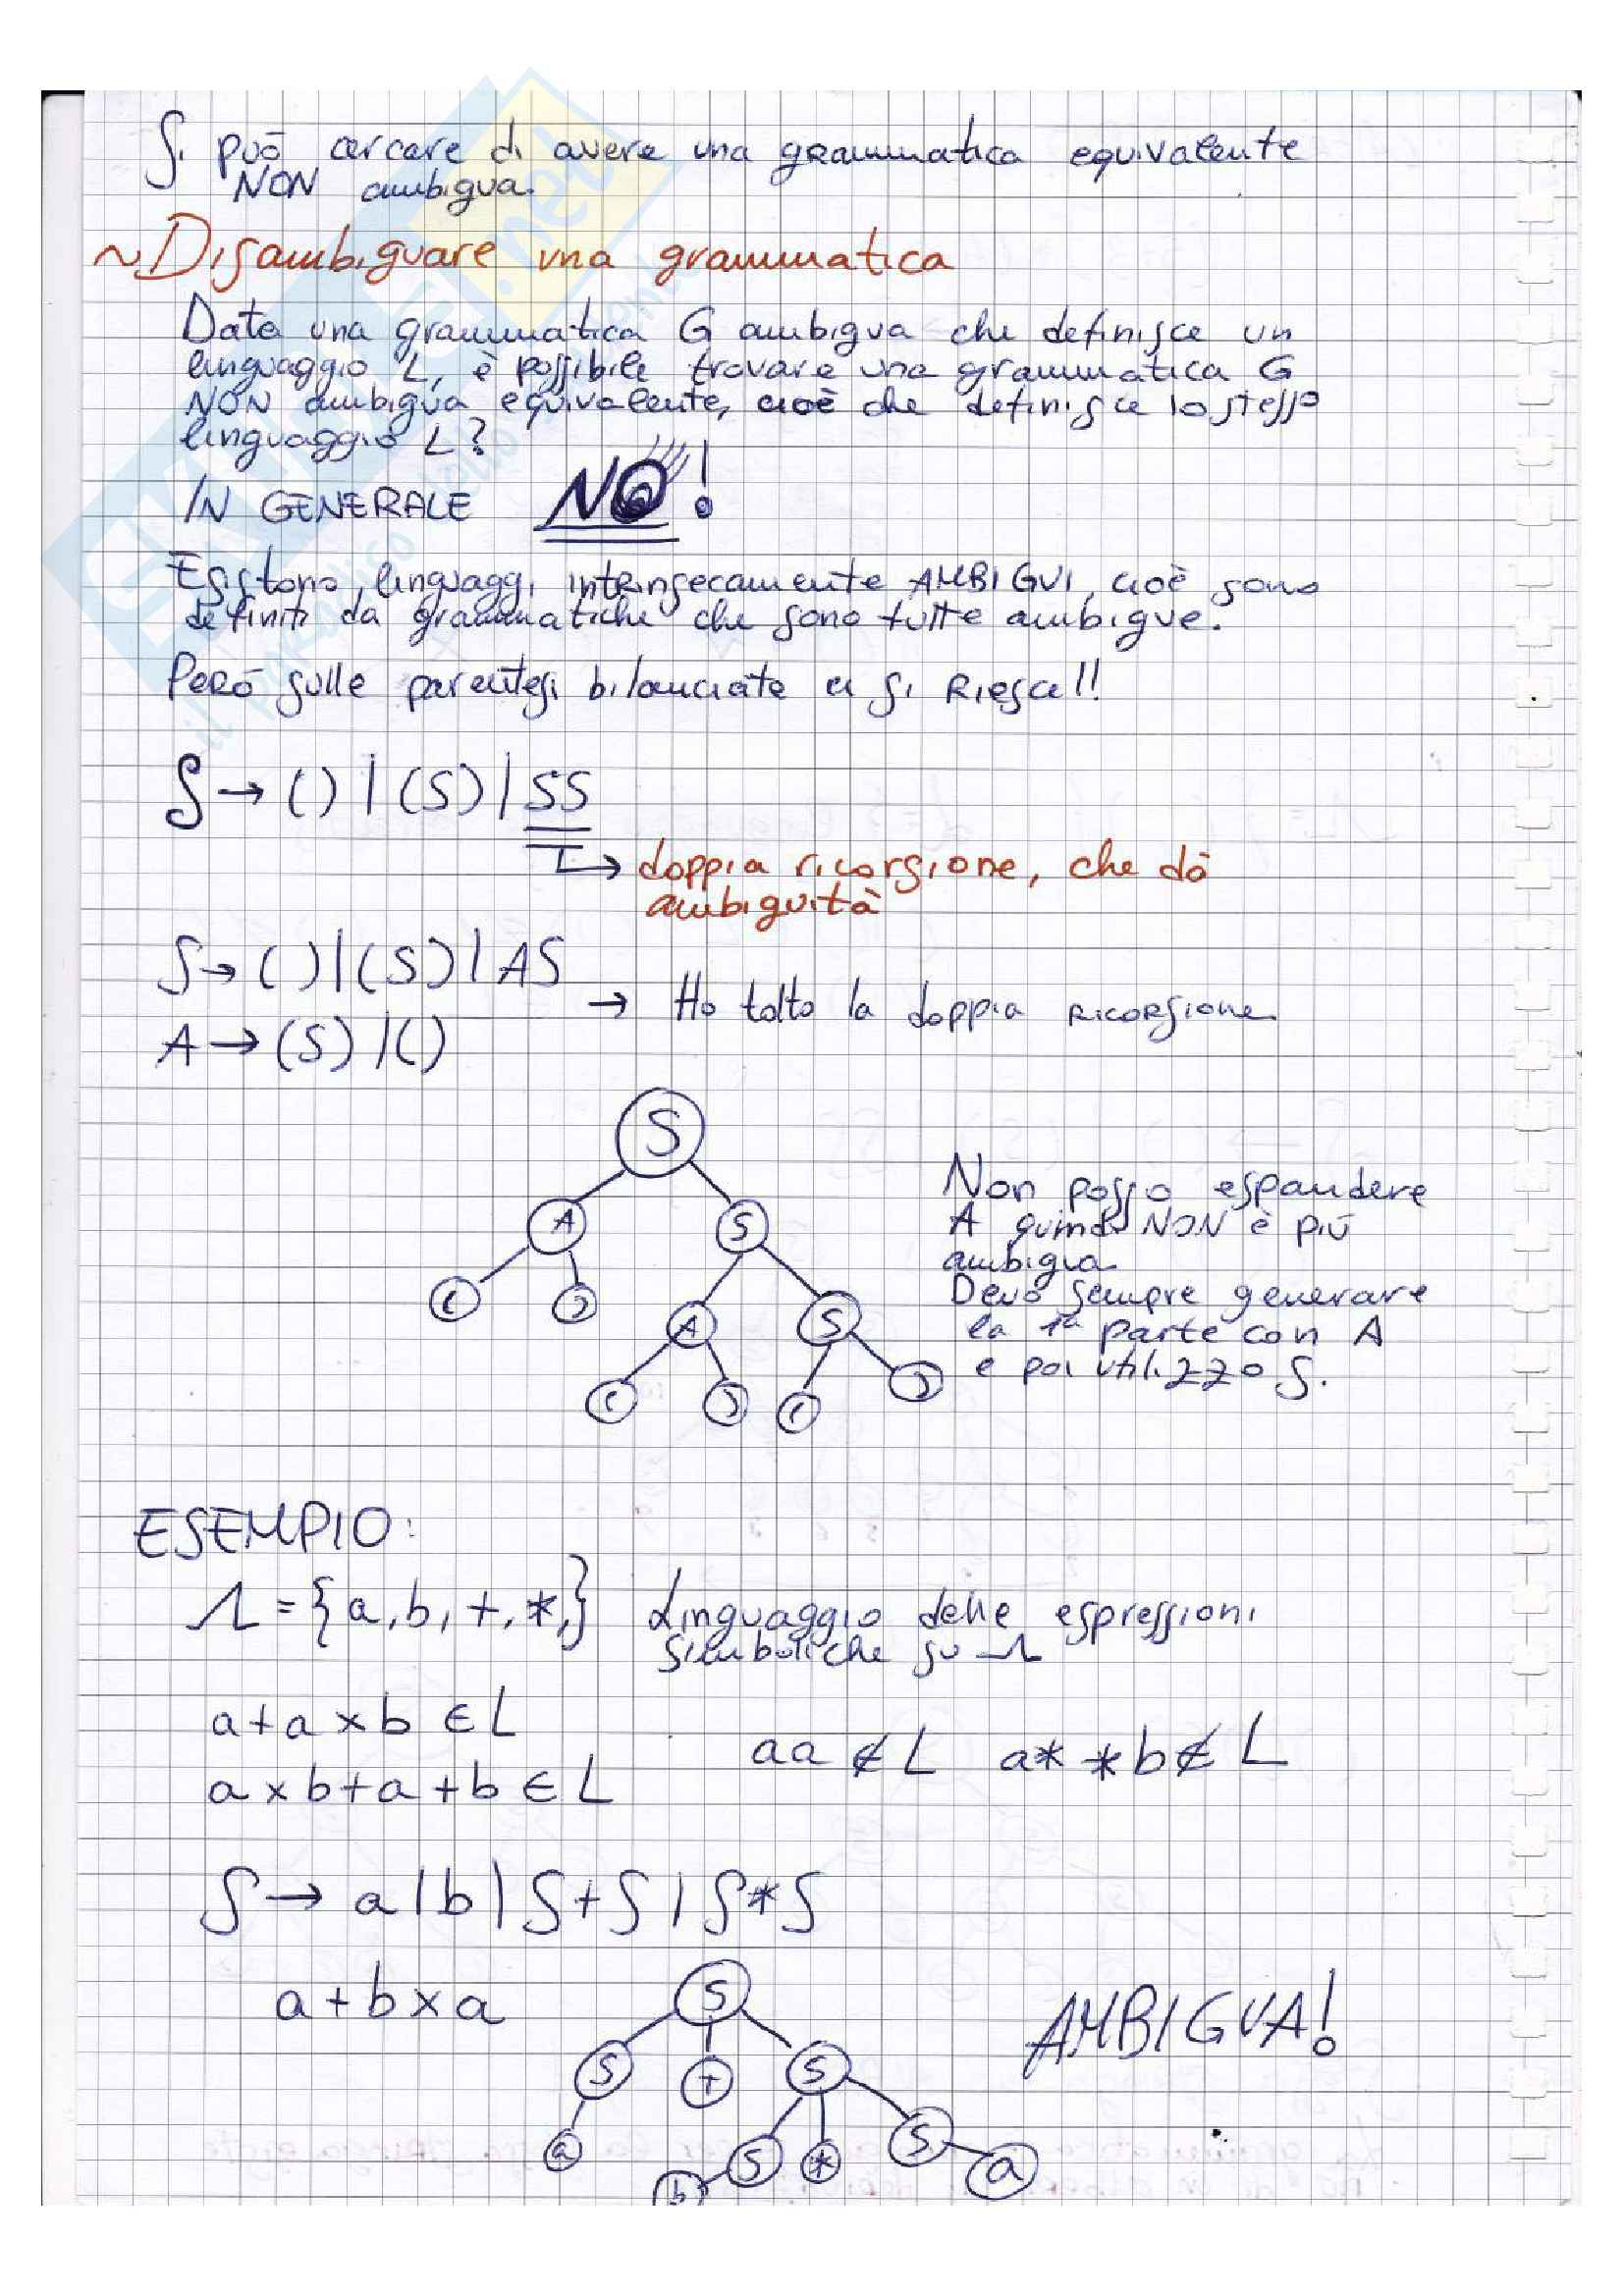 Si può cercare di avere una grammatica equivalente
NON ambigua.
~Disambiguare una grammatica
Data una grammatica G ambigua che definisce un
linguaggio L, è possibile trovare una grammatica G
NON ambigua equivalente, cioè che definisce lo stesso
linguaggio L?
IN GENERALE NO!
Esistono linguaggi intrinsecamente AMBIGUI, cioè sono
definiti da grammatiche che sono tutte ambigue.
Però sulle parentesi bilanciate ci si riesce!!
S → () | (S) | SS
↳ doppia ricorsione, che dà
ambiguità
S → () | (S) | AS
→ Ho tolto la doppia ricorsione
A → (S) | ()
S
A S
( ) A S
( ) ( )
Non posso espandere
A quindi NON è più
ambigua.
Devo sempre generare
la 1ª parte con A
e poi utilizzo S.
ESEMPIO:
Λ = {a, b, +, *,} Linguaggio delle espressioni
simboliche su Λ
a + a × b ∈ L
aa ∉ L a * * b ∉ L
a × b + a + b ∈ L
S → a | b | S + S | S * S
a + b × a
S
AMBIGUA!
S + S
a S * S
b a
SKUOLA.net